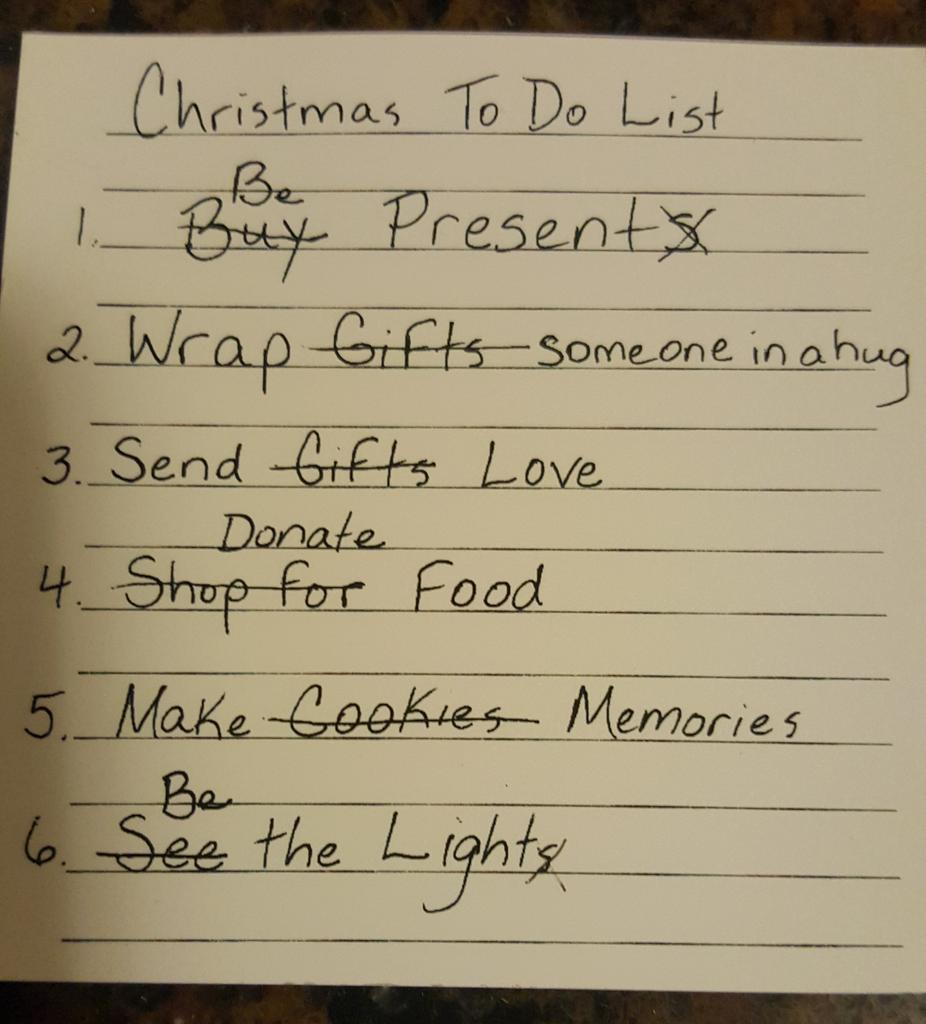 Christmas To Do List
Be
1. Buy Presents
2. Wrap Gifts someone in a hug
3. Send Gifts Love
Donate
4. Shop for Food
5. Make Cookies Memories
Be
6. See the Lights